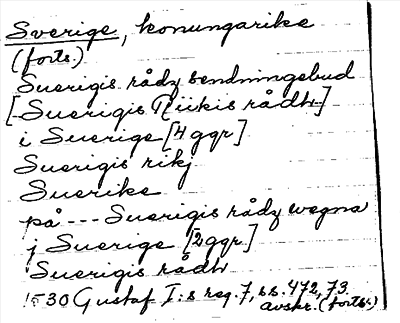 Sverige, konungarike
(forts.)
Suerigis rådz sendningebud
[Suerigis Riikis rådh]
i Suerige [4 ggr]
Suerigis rikj
Suerike
på --- Suerigis rådz wegna
j Suerige [2 ggr]
Suerigis rådh
1530 Gustaf I:s reg. 7, ss. 472, 73.
avskr. (forts.)